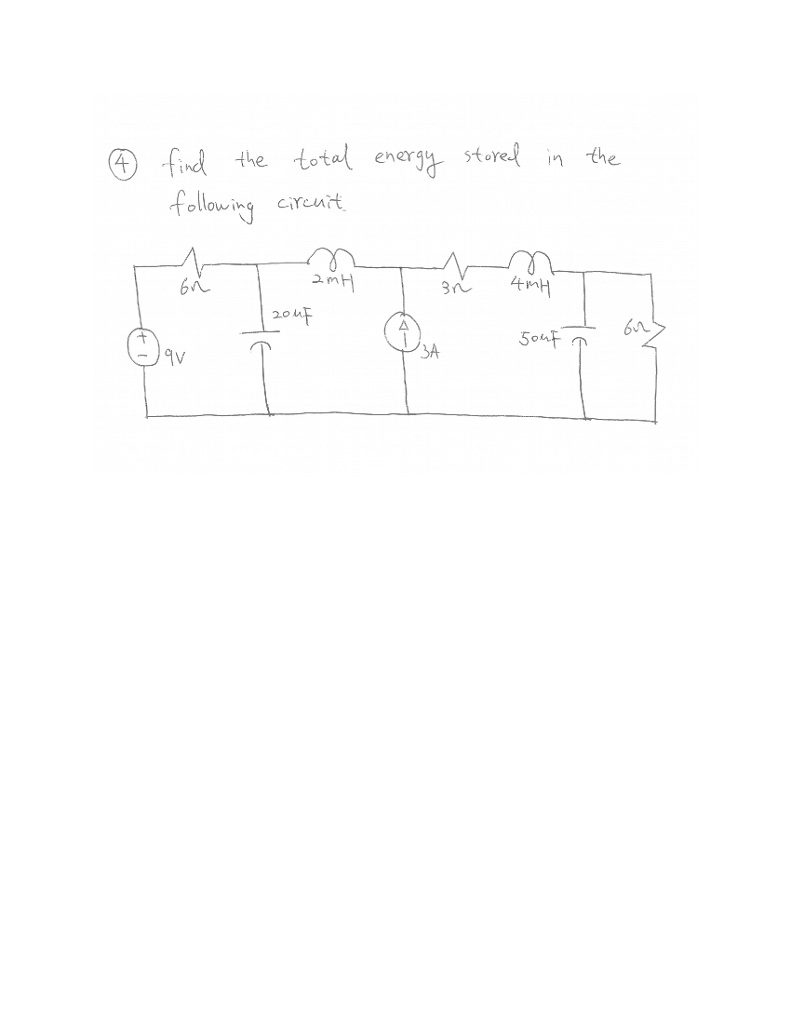 ④ find the total energy stored in the
following circuit.
6Ω
2mH
3Ω
4mH
20uF
50uF
6Ω
+
-
9V
3A